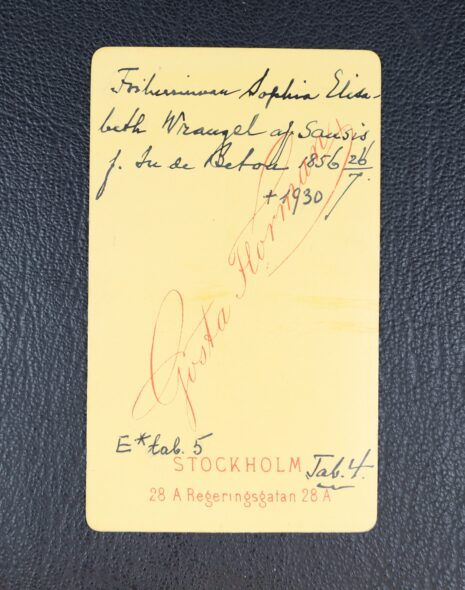 Friherrinnan Sophia Elisa-
beth Wrangel af Sausis
f. Du de Betou 1856 26/7.
+ 1930
Gösta Florman
E* tab. 5
STOCKHOLM Tab. 4.
28 A Regeringsgatan 28 A